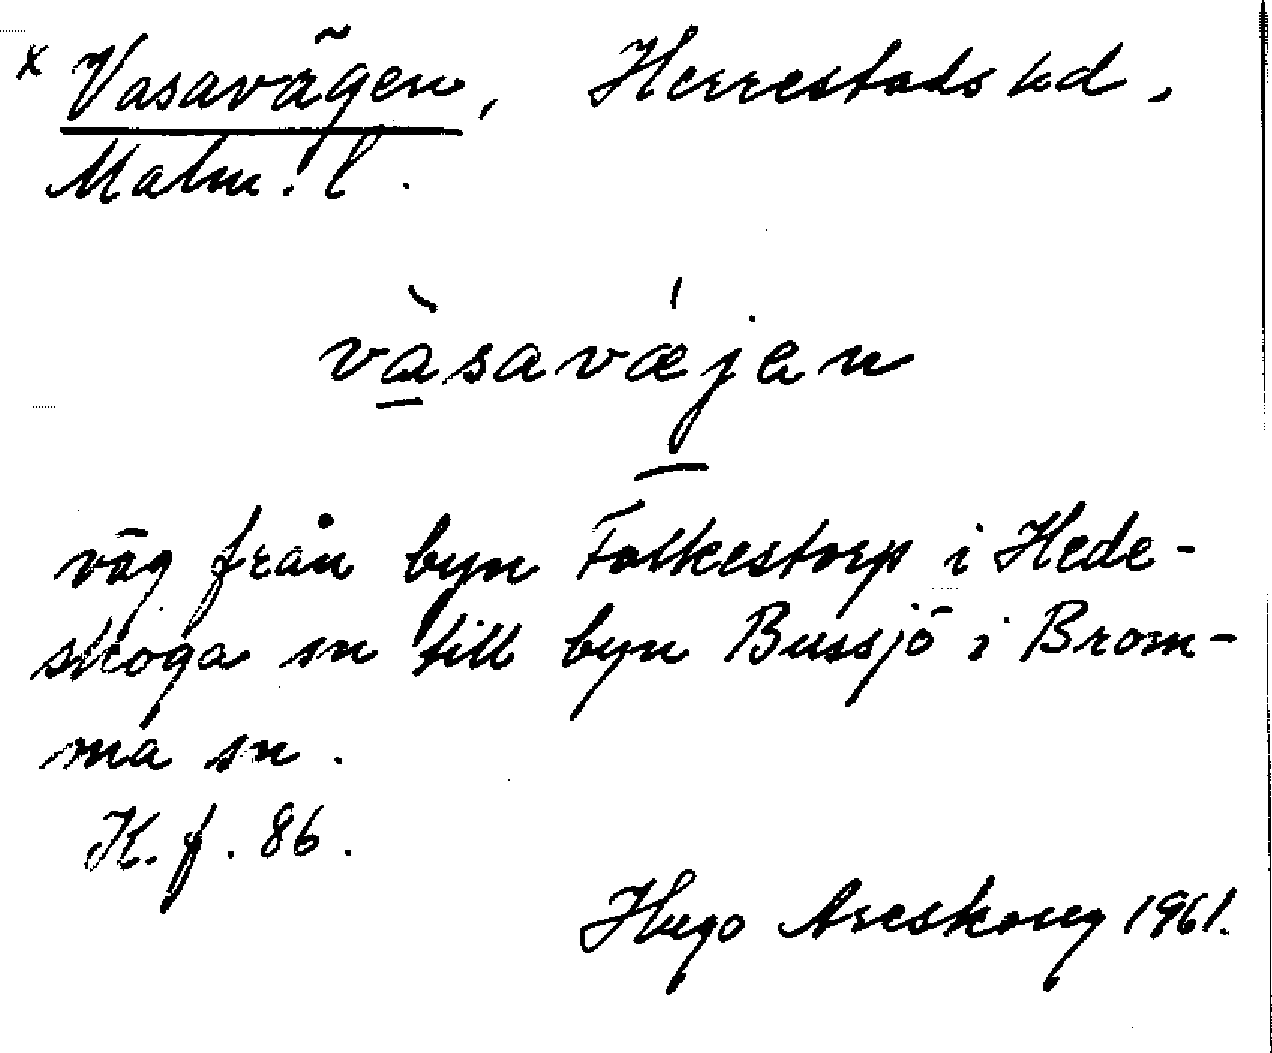 x Vasavägen, Herrestads hd.
Malm. l.
vàsavǽjen
väg från byn Folkestorp i Hede-
skoga sn till byn Bussjö i Brom-
ma sn.
K. f. 86.
Hugo Areskoug 1961.